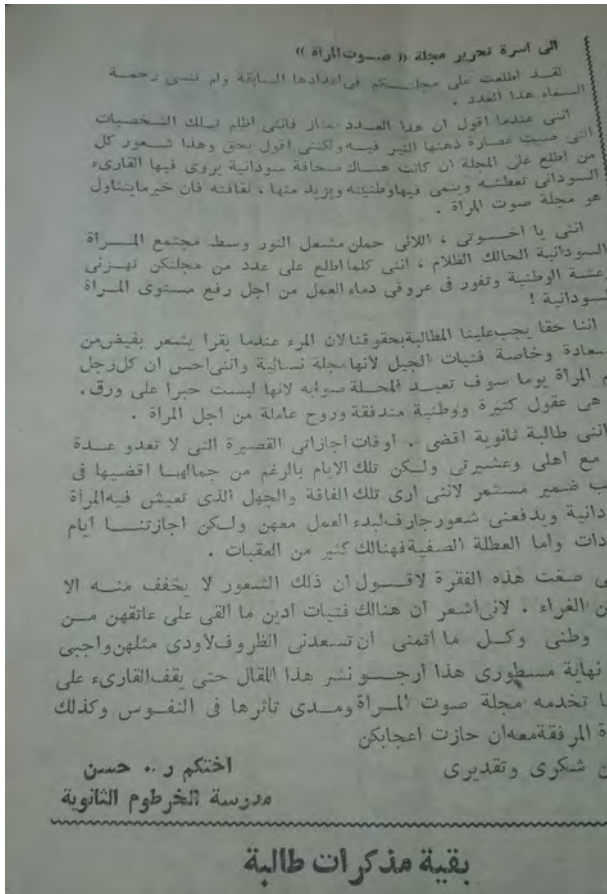 الى اسرة تحرير مجلة « صـــوت المرأة »
لقــد اطلعت على مجلــــتكم فى اعدادها السابقة ولم ننسى رحمــة
السماء هذا العدد .
اننى عندما اقول ان هذا العــدد ممتاز فاننى اظلم تــلك الشخصيات
التى صبت عصارة ذهنها النير فيــه ولكننى اقول بحق وهذا شــعور كل
من اطلع على المجلة ان كانت هنــاك صحافة سودانية يروى فيها القارىء
السودانى تعطشه وينمى فيها وطنيته ويزيد منها ، ثقافته فان خير ما يتناول
هو مجلة صوت المرأة .
اننى يا اخــوتى ، اللائى حملن مشعل النور وسط مجتمع المــــراة
السودانية الحالك الظلام ، اننى كلما اطلع على عدد من مجلتكن تهــزنى
عشة الوطنية وتفور فى عروقى دماء العمل من اجل رفع مستوى المــراة
سودانية !
اننا حقا يجب علينا المطالبة بحقوقنا لان المرء عندما يقرا يشعر بفيض من
سعادة وخاصة فتيات الجيل لانها مجلة نسائية واننى احس ان كل رجل
المرأة يوما سوف تعيــد المجــلة صوابه لانها ليست حبرا على ورق .
هى عقول كثيرة ووطنية متدفقة وروح عاملة من اجل المرأة .
اننى طالبة ثانوية اقضى .. اوقات اجازاتى القصيرة التى لا تعدو عــدة
مع اهلى وعشيرتى ولــكن تلك الايام بالرغم من جمالهــا اقضيها فى
ضمير مستمر لاننى ارى تلك الفاقة والجهل الذى تعيش فيه المرأة
دانية ويدفعنى شعور جارف لبدء العمل معهن ولــكن اجازتنــــا ايام
دات واما العطلة الصفية فهنالك كثير من العقبات .
صغت هذه الفقرة لاقــــول ان ذلك الشعور لا يخفف منــه الا
ن الغراء . لانى اشعر ان هنالك فتيات ادين ما القى على عاتقهن مــن
وطنى وكــل ما اتمنى ان تسعدنى الظروف لاودى مثلهن واجبى
نهاية مسطورى هذا ارجــــو نشر هذا المقال حتى يقف القارىء على
ا تخدمه مجلة صوت المــرأة ومــدى تأثرها فى النفــوس وكذلك
ة المرفقة معه ان حازت اعجابكن
ن شكرى وتقديرى
اختكم ر .. حسن
مدرسة الخرطوم الثانوية
بقية مذكرات طالبة